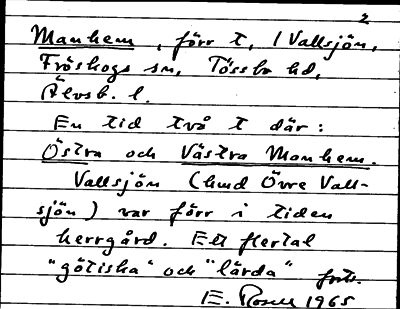 2
Manhem, förr t, i Vallsjön,
Fröskogs sn, Tössbo hd,
Älvsb. l.
En tid två t där:
Östra och Västra Manhem.
Vallsjön (hmd Övre Vall-
sjön) var förr i tiden
herrgård. Ett flertal
"götiska" och "lärda" forts.
E. Rosell 1965